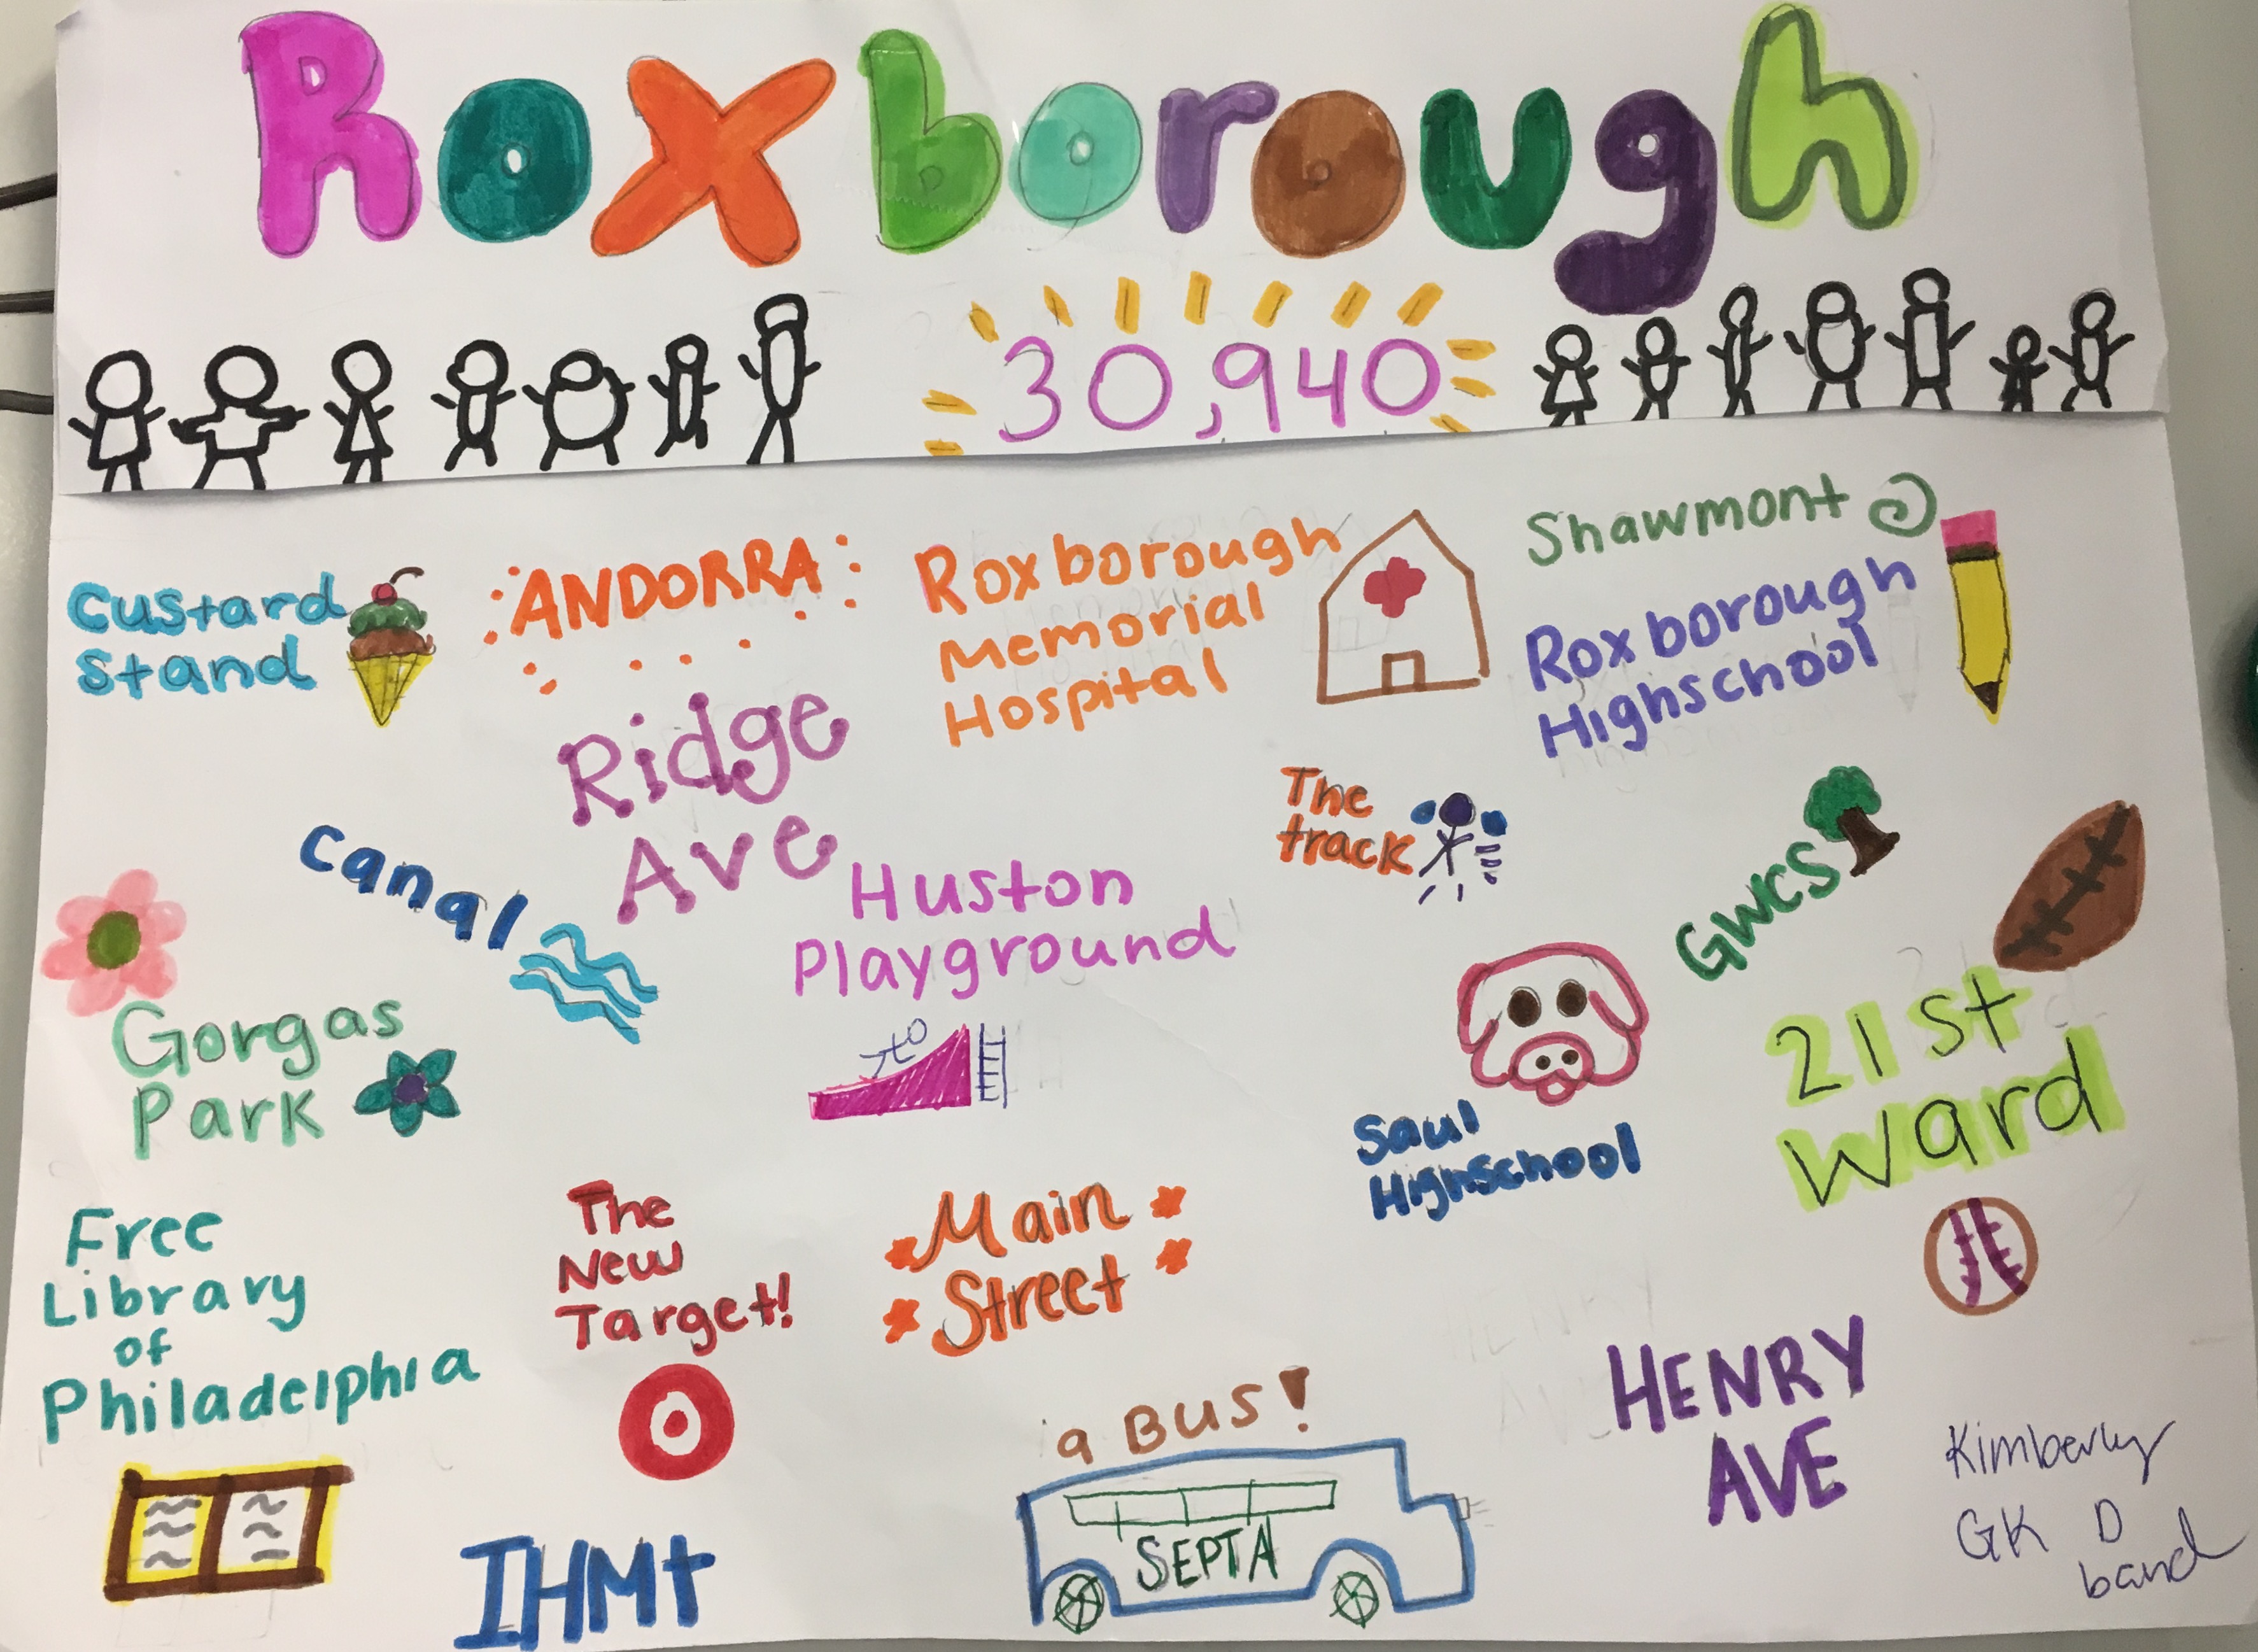 Roxborough
30,940
Custard
Stand
ANDORRA
Roxborough
Memorial
Hospital
Shawmont
Roxborough
Highschool
Ridge
Ave
The
track
canal
Huston
Playground
GWCS
Gorgas
Park
21st
Ward
Saul
Highschool
Free
Library
of
Philadelphia
The
New
Target!
Main
Street
a Bus!
SEPTA
HENRY
AVE
IHM†
Kimberly
GK D
band